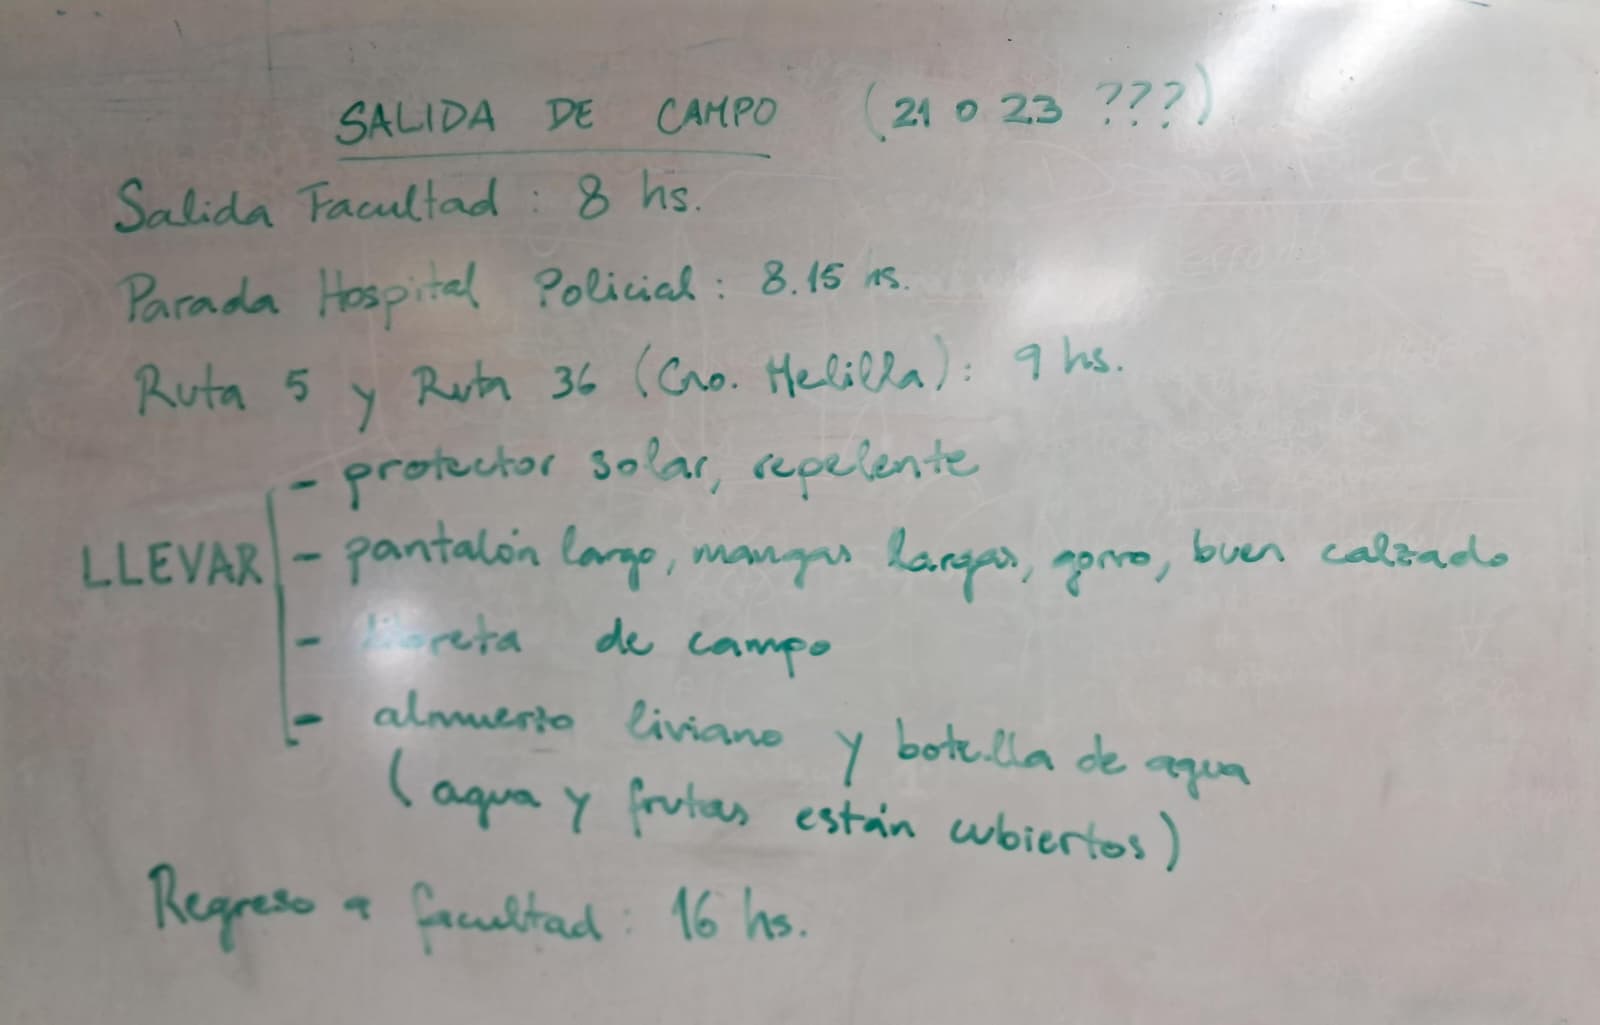 SALIDA DE CAMPO (21 o 23 ???)
Salida Facultad : 8 hs.
Parada Hospital Policial : 8.15 hs.
Ruta 5 y Ruta 36 (Cno. Melilla) : 9 hs.
- protector solar, repelente
LLEVAR - pantalón largo, mangas largas, gorro, buen calzado
- libreta de campo
- almuerzo liviano y botella de agua
(agua y frutas están cubiertos)
Regreso a facultad : 16 hs.